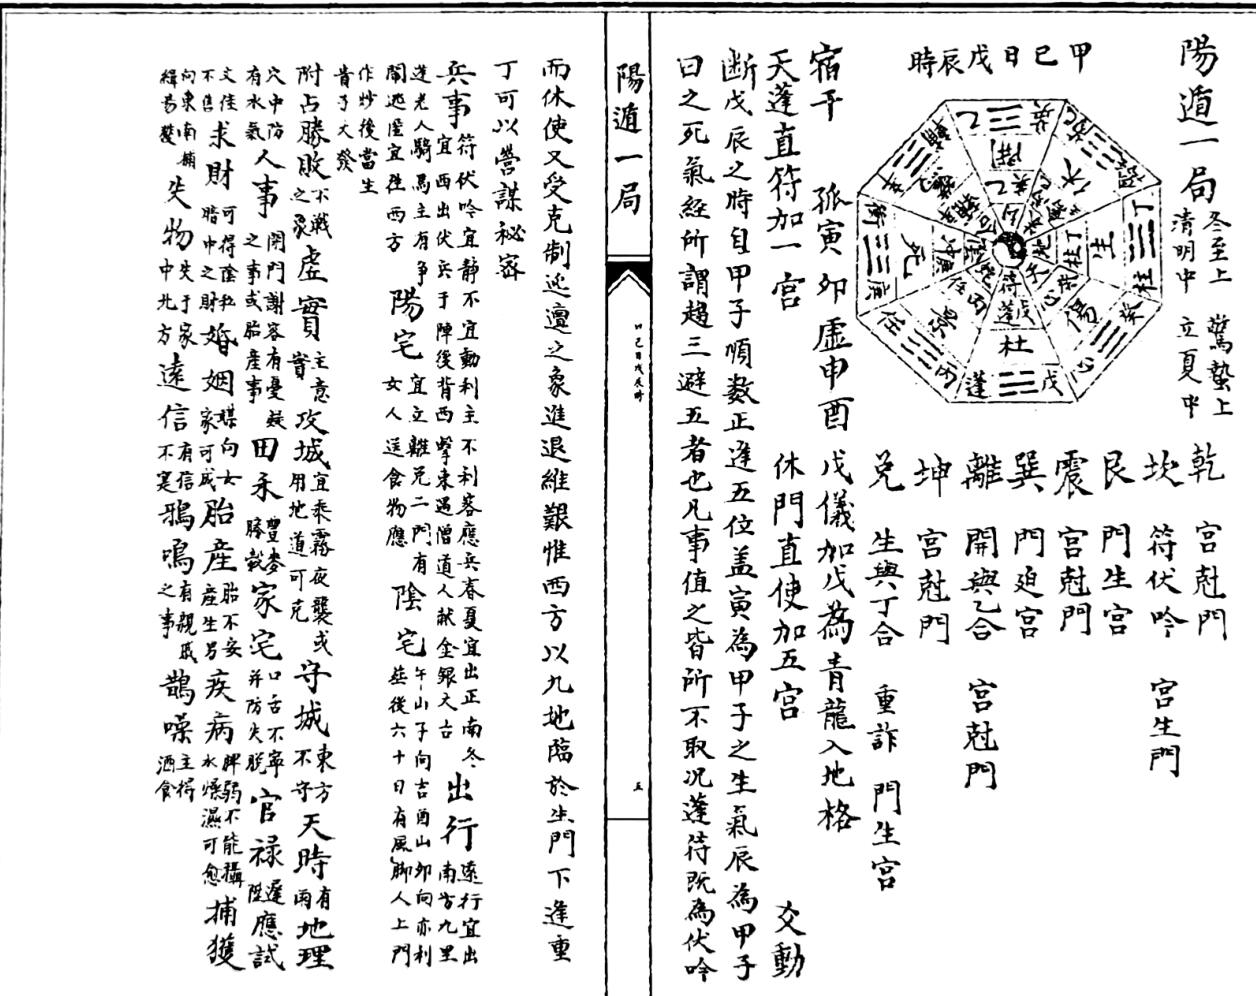 陽遁一局 冬至上 驚蟄上
清明中 立夏中
甲己日戊辰時
乾 宮尅門
坎 符伏吟 宮生門
艮 門生宮
震 宮尅門
巽 門廹宮
離 開與乙合 宮尅門
坤 宮尅門
兌 生與丁合 重詐 門生宮
宿干 孤寅卯虛申酉 戊儀加戊為青龍入地格
天蓬直符加一宮 休門直使加五宮 交動
断戊辰之時自甲子順数正逢五位盖寅為甲子之生氣辰為甲子
日之死氣經所謂趨三避五者也凡事值之皆所不取况蓬符既為伏吟
陽遁一局
甲己日戊辰時
五
而休使又受克制迍邅之象進退維艱惟西方以九地臨於生門下逢重
丁可以營謀秘密
兵事 符伏吟宜静不宜動利主不利客應兵春夏宜出正南冬
宜西出伏兵于陣後背西擊東遇僧道人献金銀大吉
出行 遠行宜出
南方九里
逢老人騎馬主有争
鬧逃匿宜徃西方
陽宅 宜立離兌二門有
女人送食物應
陰宅 午山子向吉酉山卯向亦利
塟後六十日有風脚人上門
作炒後當生
貴子大發
附占勝敗 不戰
之象
虛實 主意
實
攻城 宜乘霧夜襲或
用地道可克
守城 東方
不守
天時 有
雨
地理
穴中防
有水氣
人事 閉門謝客有憂疑
之事或胎產事
田禾 豐麥
勝穀
家宅 口舌不寧
并防失脱
官禄 遲
陞
應試
文佳
不售
求財 可得陰私
暗中之財
婚姻 媒向女
家可成
胎產 胎不安
產生男
疾病 脾弱不能攝
水燥濕可愈
捕獲
向東南捕
緝易獲
失物 失于家
中北方
遠信 有信
不寔
鴉鳴 有親戚
之事
鵲噪 主得
酒食